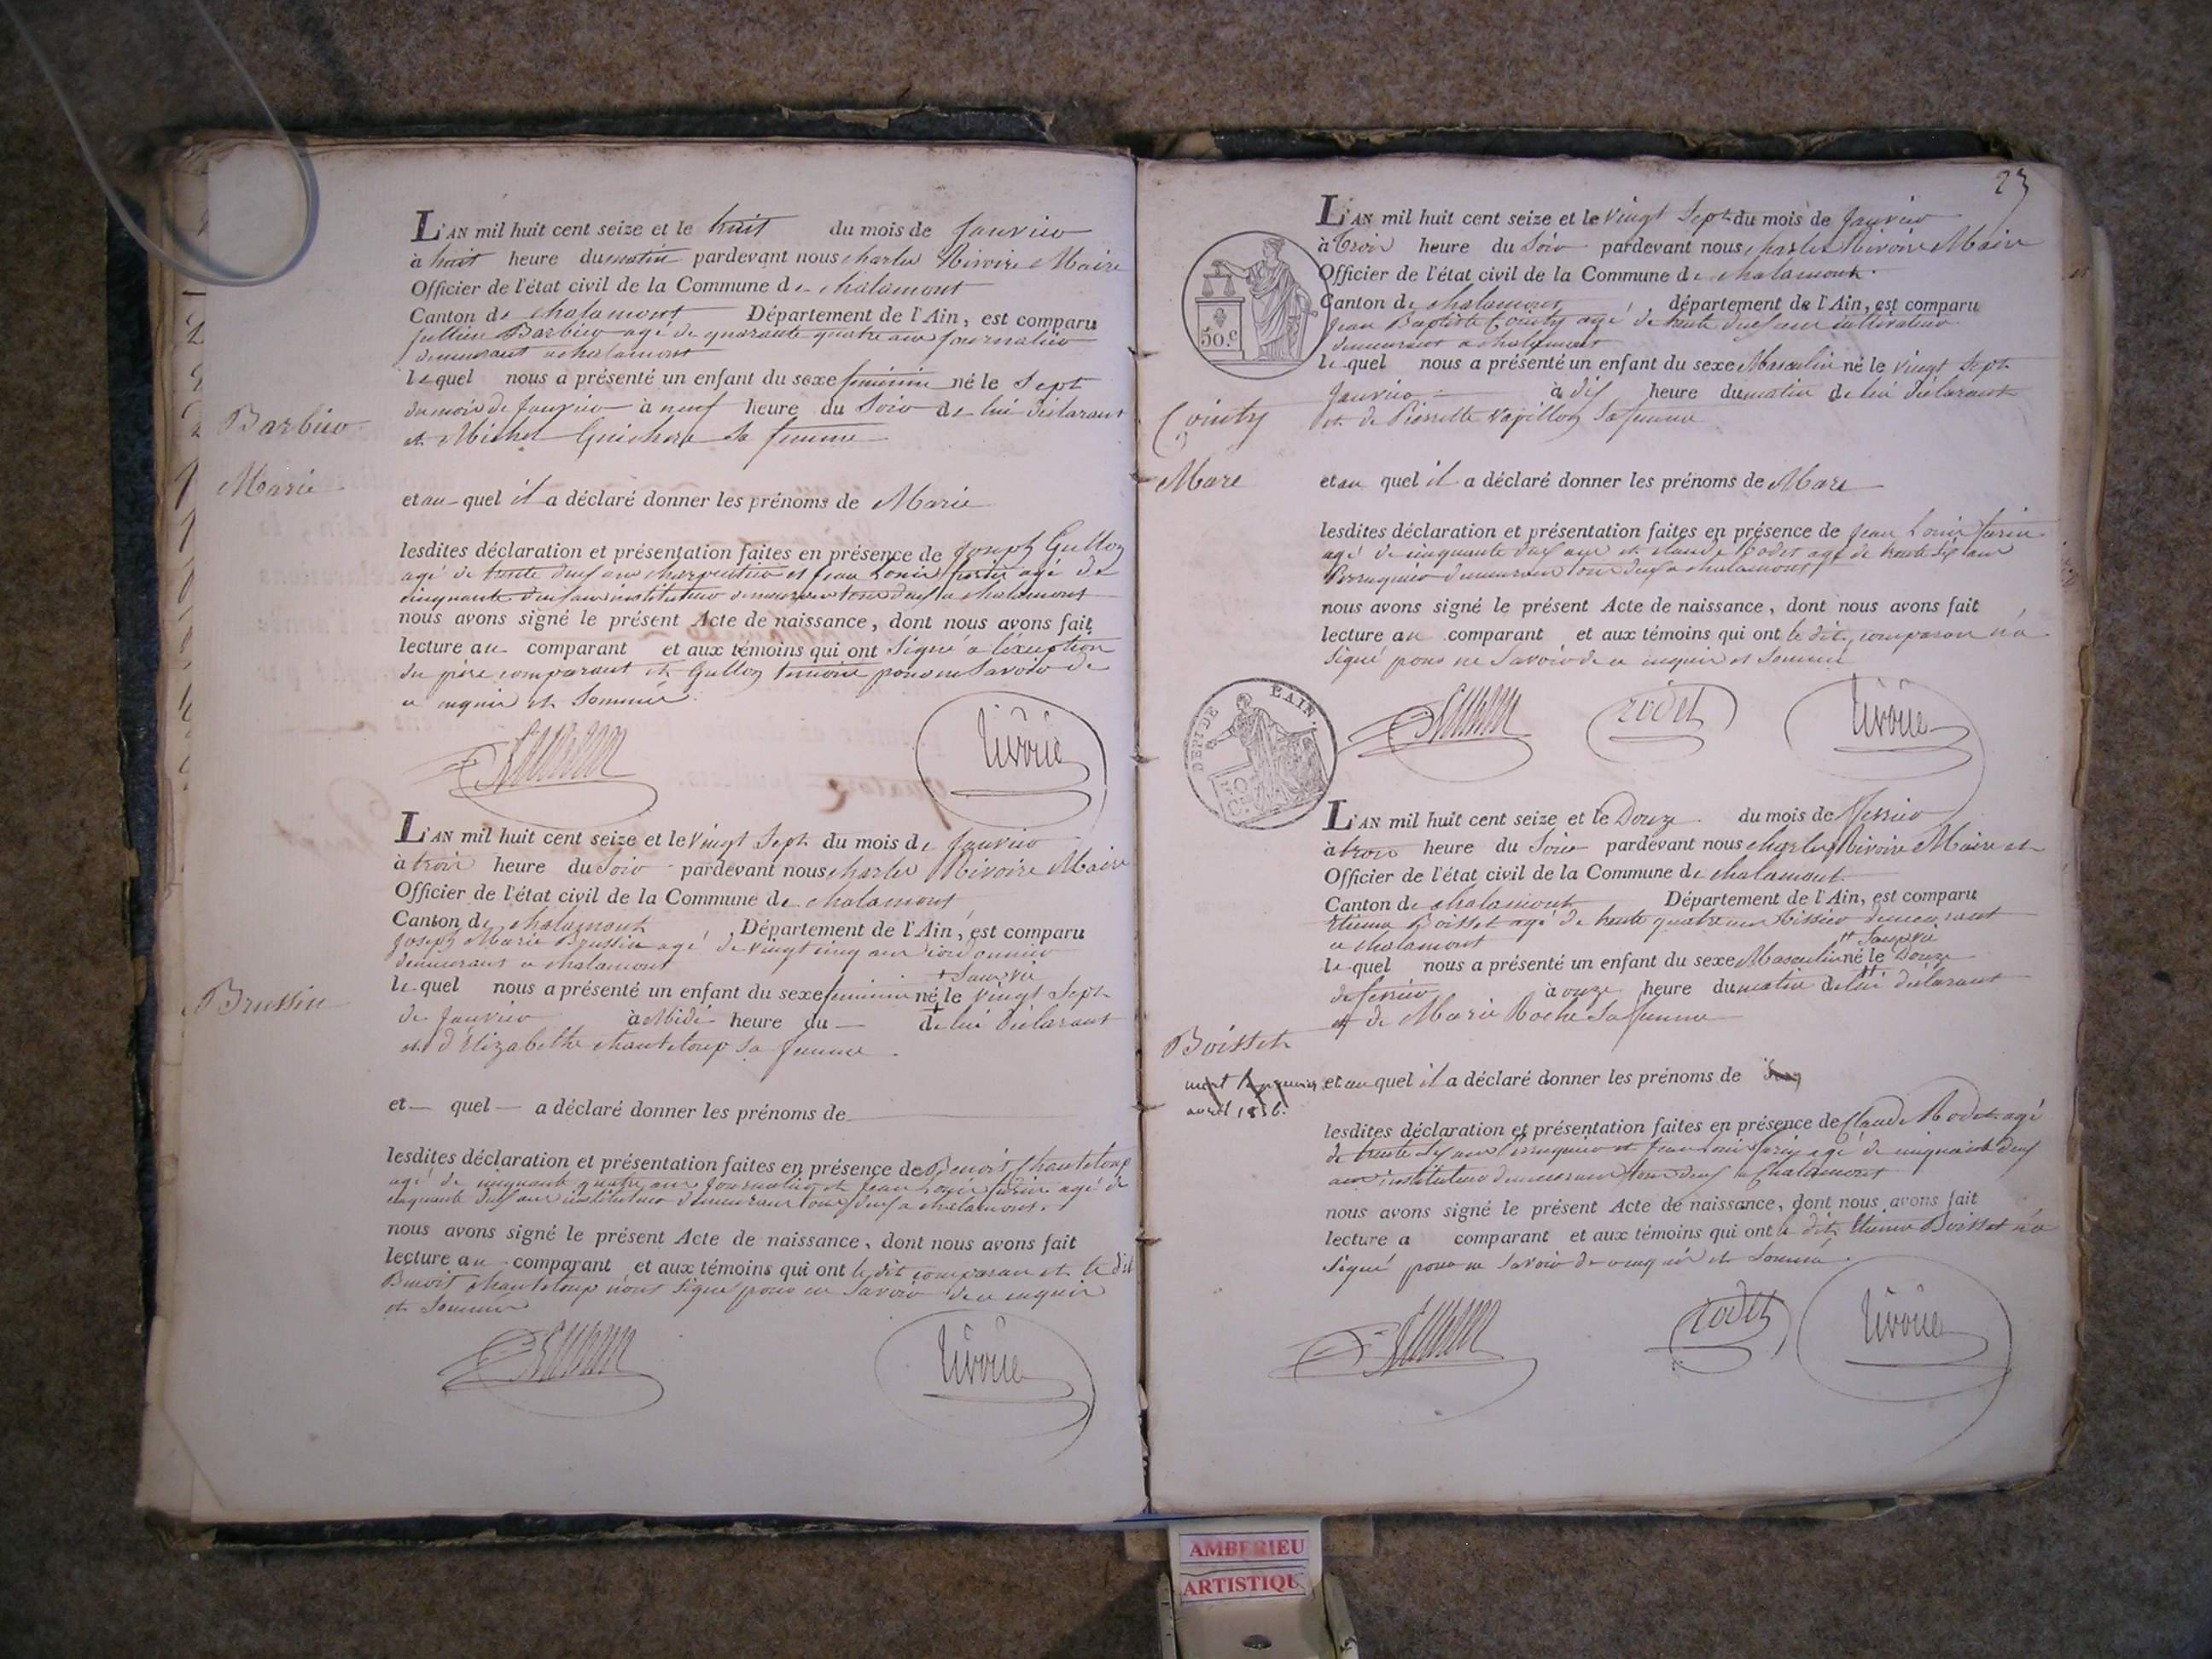 L'AN mil huit cent seize et le huit du mois de Janvier
à huit heure du matin pardevant nous charles Rivoire Maire
Officier de l'état civil de la Commune de chalamont
Canton de chalamont Département de l'Ain, est comparu
Jullien Barbier agé de quarante quatre ans Journalier
demeurant a chalamont
lequel nous a présenté un enfant du sexe feminin né le Sept
du mois de Janvier à neuf heure du Soir de lui déclarant
et Michel Guichere sa femme
Barbier
Marie
et au quel il a déclaré donner les prénoms de Marie
lesdites déclaration et présentation faites en présence de Joseph Gulloz
agé de trente deux ans charpentier et Jean Louis agé de
cinquante deux ans instituteur demeurant tous deux a chalamont
nous avons signé le présent Acte de naissance, dont nous avons fait
lecture au comparant et aux témoins qui ont Signé a l'exception
du père comparant et Gulloz temoin pour ne Savoir de
ce enquis et Sommé
rivoire
L'AN mil huit cent seize et le vingt Sept du mois de Janvier
à trois heure du Soir pardevant nous charles Rivoire Maire
Officier de l'état civil de la Commune de chalamont
Canton de chalamont Département de l'Ain, est comparu
Joseph Marie Brussin agé de vingt cinq ans cordonnier
demeurant a chalamont
+ Sans vie
le quel nous a présenté un enfant du sexe feminin né + le vingt Sept
de Janvier à Midi heure du — de lui déclarant
et d'Elizabethe chanteloup sa femme
Brussin
et — quel — a déclaré donner les prénoms de
lesdites déclaration et présentation faites en présence de Benoit Chanteloup
agé de cinquante quatre ans Journalier et Jean Louis agé de
cinquante deux ans instituteur demeurant tous deux a chalamont.
nous avons signé le présent Acte de naissance, dont nous avons fait
lecture au comparant et aux témoins qui ont le dit comparan et le dit
Benoit chanteloup n'ont Signé pour ne Savoir de ce enquis
et Sommé
rivoire
23
L'AN mil huit cent seize et le vingt Sept du mois de Janvier
à trois heure du Soir pardevant nous charles Rivoire Maire
Officier de l'état civil de la Commune de chalamont.
Canton de chalamont département de l'Ain, est comparu
Jean Baptiste Cointy agé de trente deux ans cultivateur
demeurant a chalamont
50.c
le quel nous a présenté un enfant du sexe Masculin né le vingt Sept
Janvier à dix heure du matin de lui déclarant
et de Pierrette Vapillon Sa femme
Cointy
Marc
et au quel il a déclaré donner les prénoms de Marc
lesdites déclaration et présentation faites en présence de Jean Louis
agé de cinquante deux ans et claude Rodet agé de trente Six ans
Perruquier demeurant tous deux a chalamont
nous avons signé le présent Acte de naissance, dont nous avons fait
lecture au comparant et aux témoins qui ont le dit comparan n'a
Signé pour ne Savoir de ce enquis et Sommé
DEPT. DE L'AIN.
rodet rivoire
L'AN mil huit cent seize et le Douze du mois de fevrier
à trois heure du Soir pardevant nous charles Rivoire Maire et
Officier de l'état civil de la Commune de chalamont
Canton de chalamont Département de l'Ain, est comparu
Etienne Boisset agé de trente quatre ans tissier demeurant
a chalamont
le quel nous a présenté un enfant du sexe Masculin né le Douze
de fevrier à onze heure du matin de lui déclarant
et de Marie Roche Sa femme
Boisset
mort le premier
avril 1836.
et au quel il a déclaré donner les prénoms de
lesdites déclaration et présentation faites en présence de Claude Rodet agé
de trente Six ans Perruquier et Jean Louis agé de cinquante deux
ans instituteur demeurant tous deux a Chalamont
nous avons signé le présent Acte de naissance, dont nous avons fait
lecture a comparant et aux témoins qui ont le dit Etienne Boisset n'a
Signé pour ne Savoir de ce enquis et Sommé.
rodet rivoire
AMBERIEU
ARTISTIQU